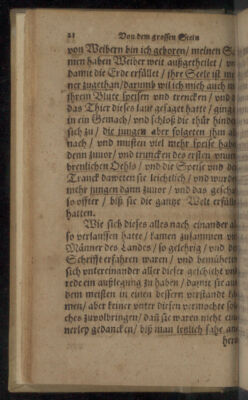 21 Von dem grossen Stein
von Weibern bin ich geboren / meinen Sa-
men haben Weiber weit außgetheilet / vnd
damit die Erde erfüllet / ihre Seele ist mei-
ner zugethan / darumb wil ich mich auch mit
ihrem Blute speisen vnd trencken / vnd da
das Thier dieses laut gesaget hatte / gieng es
in ein Gemach / vnd schloß die thür hinder
sich zu / die jungen aber folgeten ihm al-
nach / vnd musten viel mehr speise haben
denn zuvor / vnd truncken des ersten vnuer-
brenlichen Oehls / vnd die Speise vnd der
Tranck daweten sie leichtlich / vnd wurden
mehr jungen dann zuvor / vnd das geschach
so offter / biß sie die gantze Welt erfüllet
hatten.
Wie sich dieses alles nach einander al-
so verlauffen hatte / kamen zusammen viel
Männer des Landes / so gelehrig / vnd der
Schrifft erfahren waren / vnd bemüheten
sich untereinander aller dieser geschicht vnd
rede ein außlegung zu haben / damit sie auß
dem meisten in einen bessern verstandt kä-
men / aber keiner unter diesen vermochte sol-
ches zuvolbringen / dañ sie waren nicht ei-
nerley gedancken / biß man letzlich sahe / ein
hero